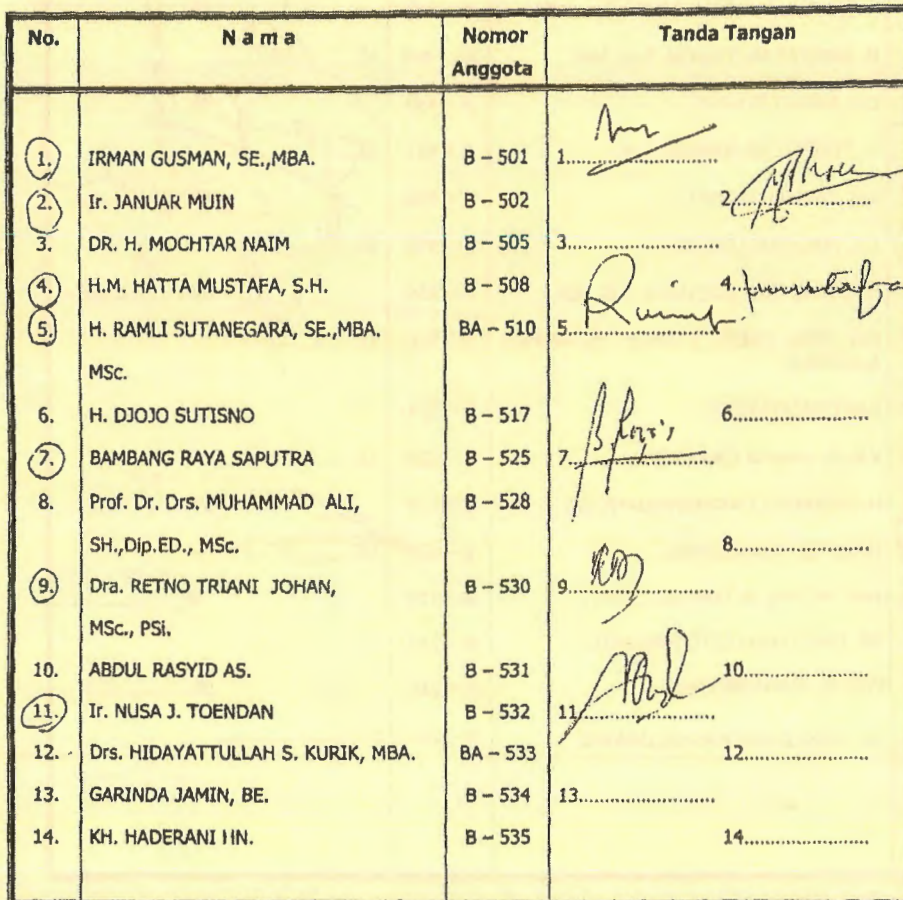 No. Nama Nomor Anggota Tanda Tangan
1. IRMAN GUSMAN, SE.,MBA. B – 501 1....................
2. Ir. JANUAR MUIN B – 502 2....................
3. DR. H. MOCHTAR NAIM B – 505 3....................
4. H.M. HATTA MUSTAFA, S.H. B – 508 4....................
5. H. RAMLI SUTANEGARA, SE.,MBA. BA – 510 5....................
MSc.
6. H. DJOJO SUTISNO B – 517 6....................
7. BAMBANG RAYA SAPUTRA B – 525 7....................
8. Prof. Dr. Drs. MUHAMMAD ALI, B – 528
SH.,Dip.ED., MSc. 8....................
9. Dra. RETNO TRIANI JOHAN, B – 530 9....................
MSc., PSi.
10. ABDUL RASYID AS. B – 531 10....................
11. Ir. NUSA J. TOENDAN B – 532 11....................
12. Drs. HIDAYATTULLAH S. KURIK, MBA. BA – 533 12....................
13. GARINDA JAMIN, BE. B – 534 13....................
14. KH. HADERANI HN. B – 535 14....................